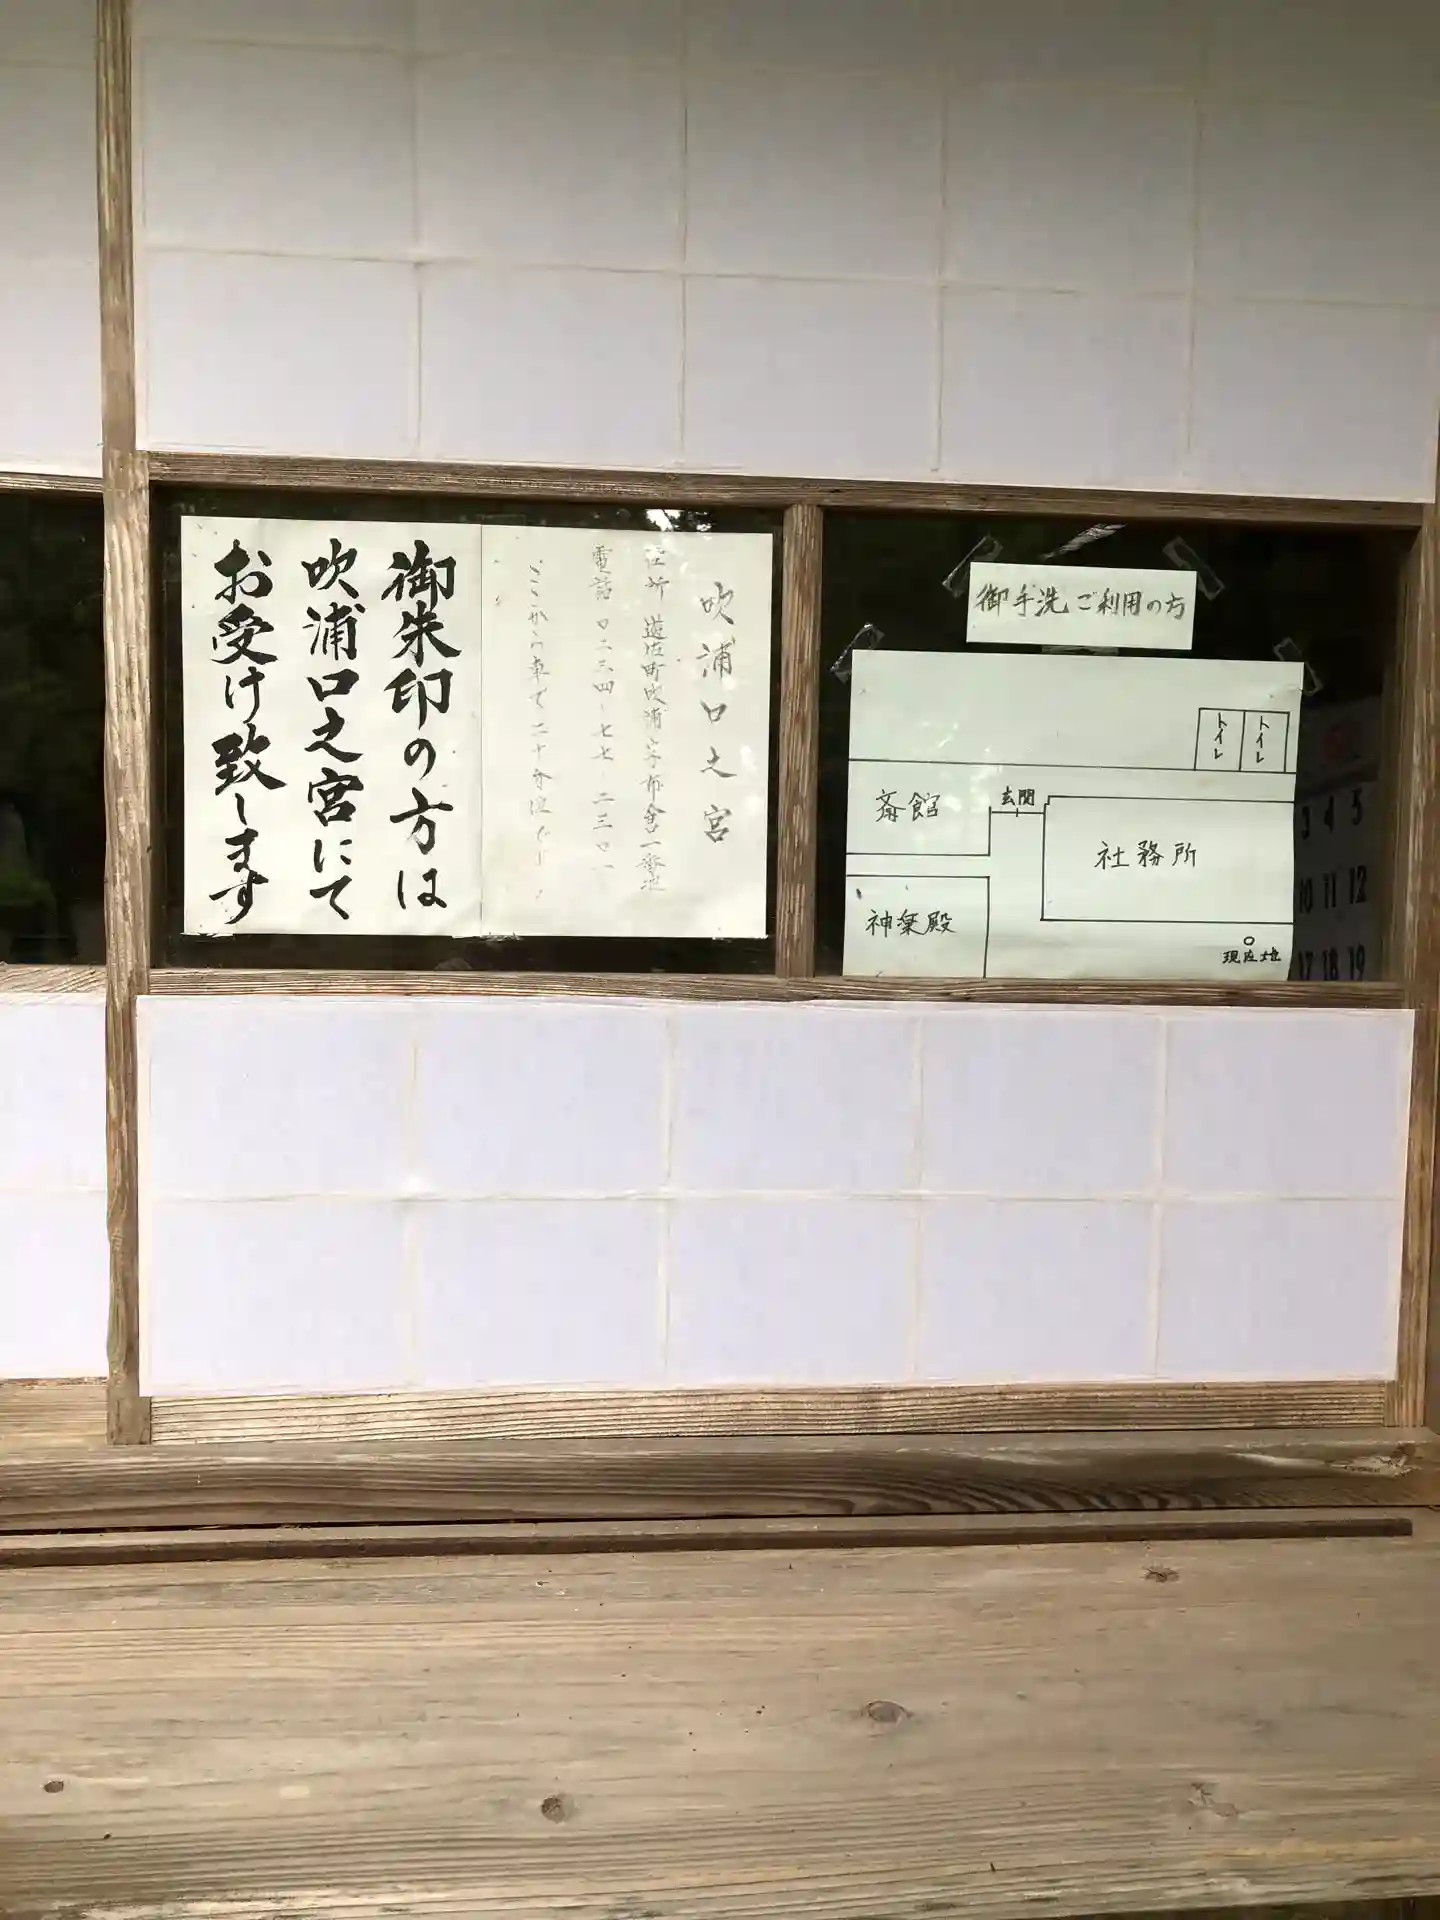 御朱印の方は
吹浦口之宮にて
お受け致します
吹浦口之宮
住所 遊佐町吹浦字布倉一番地
電話 〇二三四-七七-二三〇一
ここから車で二十分位です
御手洗ご利用の方
トイレ
トイレ
斎館
玄関
社務所
神楽殿
現在地
3 4 5
10 11 12
17 18 19